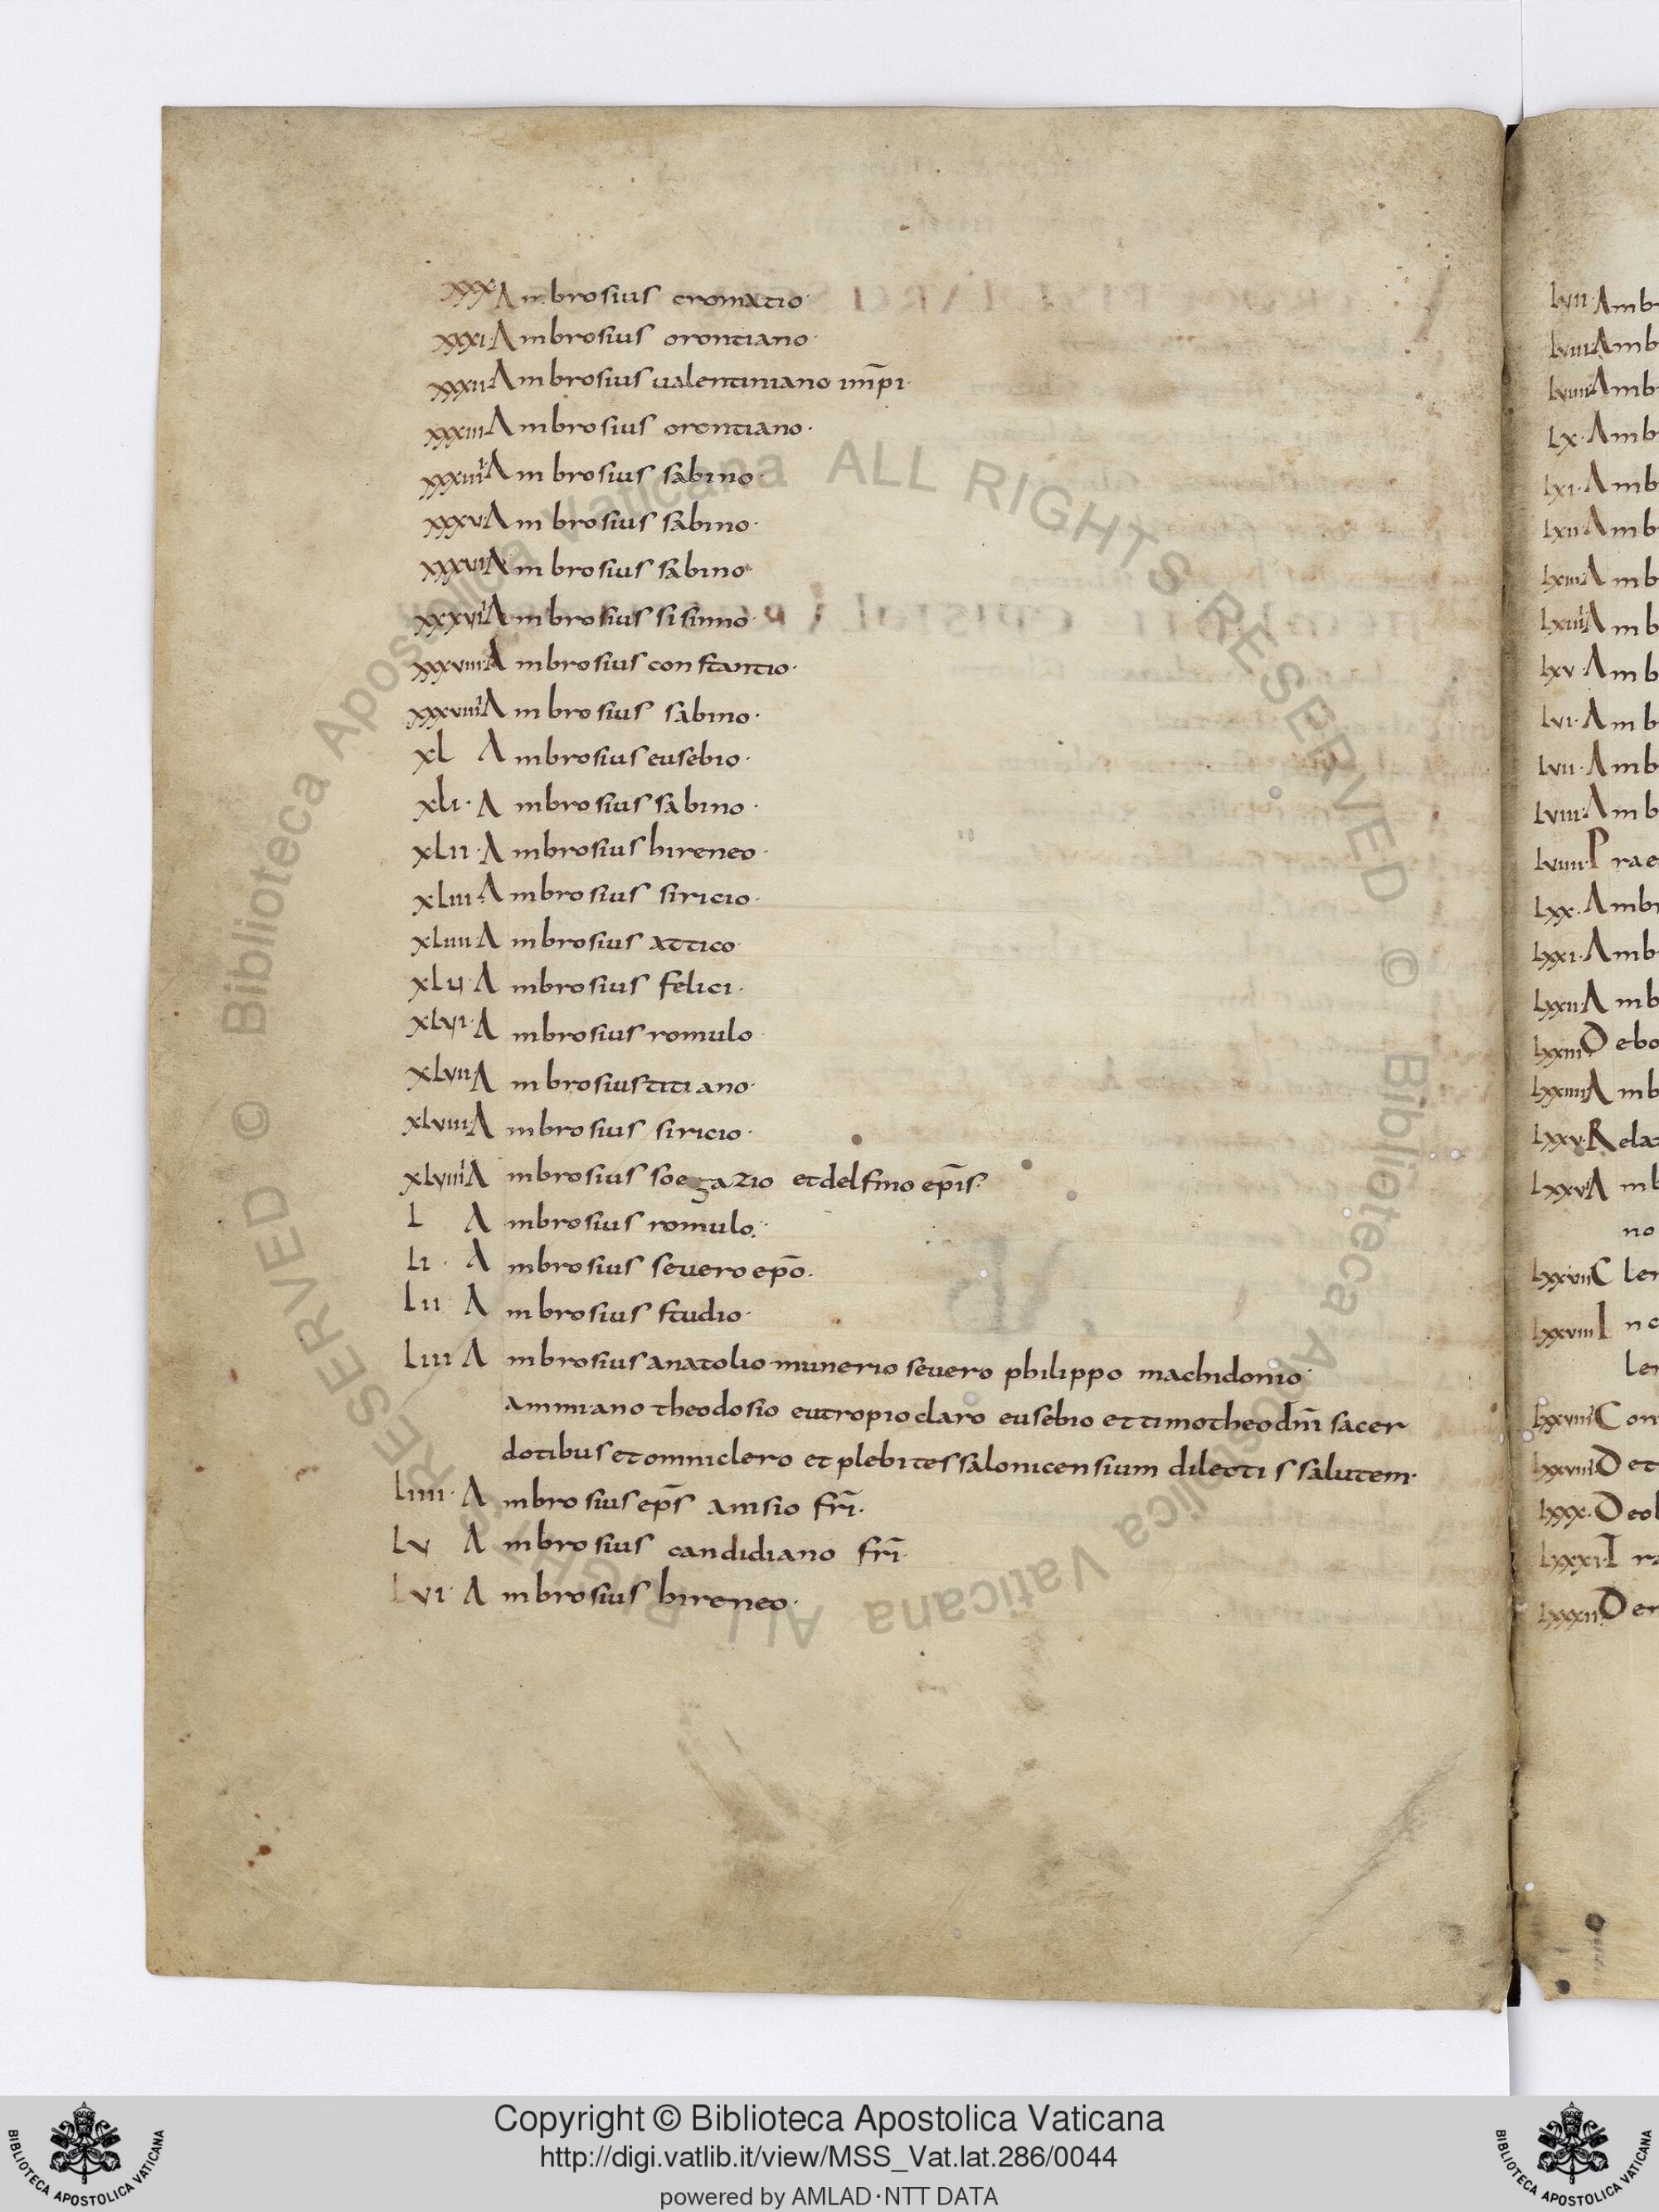 xxx Ambrosius cromatio·
xxxi· Ambrosius orontiano·
xxxii· Ambrosius ualentiniano im̄pi·
xxxiii Ambrosius orontiano·
xxxiiii· Ambrosius sabino·
xxxv· Ambrosius sabino·
xxxvi Ambrosius sabino·
xxxvii Ambrosius sisinno·
xxxviii· Ambrosius constantio·
xxxviiii Ambrosius sabino·
xl Ambrosius eusebio·
xli· Ambrosius sabino·
xlii· Ambrosius hireneo·
xliii· Ambrosius siricio·
xliiii· Ambrosius attico·
xlv· Ambrosius felici·
xlvi· Ambrosius romulo
xlvii Ambrosius titiano·
xlviii· Ambrosius siricio·
xlviiii Ambrosius soegazio et delfino ep̄is·
L Ambrosius romulo·
Li· Ambrosius seuero ep̄o·
Lii Ambrosius studio·
Liii Ambrosius anatolio munerio seuero philippo machidonio·
ammiano theodosio eutropio claro eusebio et timotheo dn̄i sacer
dotibus et omni clero et plebi tessalonicensium dilectis salutem·
Liiii· Ambrosius ep̄s anisio fr̄i·
Lv Ambrosius candidiano fr̄i·
Lvi· Ambrosius hireneo·
Lvii· Amb
Lviii Amb
Lviiii Amb
Lx· Amb
Lxi· Amb
Lxii Amb
Lxiii Amb
Lxiiii Amb
Lxv· Amb
Lvi· Amb
Lvii· Amb
Lviii· Amb
Lviiii· Prae
Lxx· Amb
Lxxi· Amb
Lxxii· Amb
Lxxiii Debo
Lxxiiii Amb
Lxxv· Rela
Lxxvi Amb
no
Lxxvii Cle
Lxxviii In
Lxxviiii Con
Lxxviiii Det
Lxxx· Deo
Lxxxi· Ir
Lxxxii De
© Biblioteca Apostolica Vaticana ALL RIGHTS RESERVED © Biblioteca Apostolica Vaticana ALL RIGHTS RESERVED
Copyright © Biblioteca Apostolica Vaticana
http://digi.vatlib.it/view/MSS_Vat.lat.286/0044
powered by AMLAD·NTT DATA
BIBLIOTECA APOSTOLICA VATICANA
BIBLIOTECA APOSTOLICA VATICANA